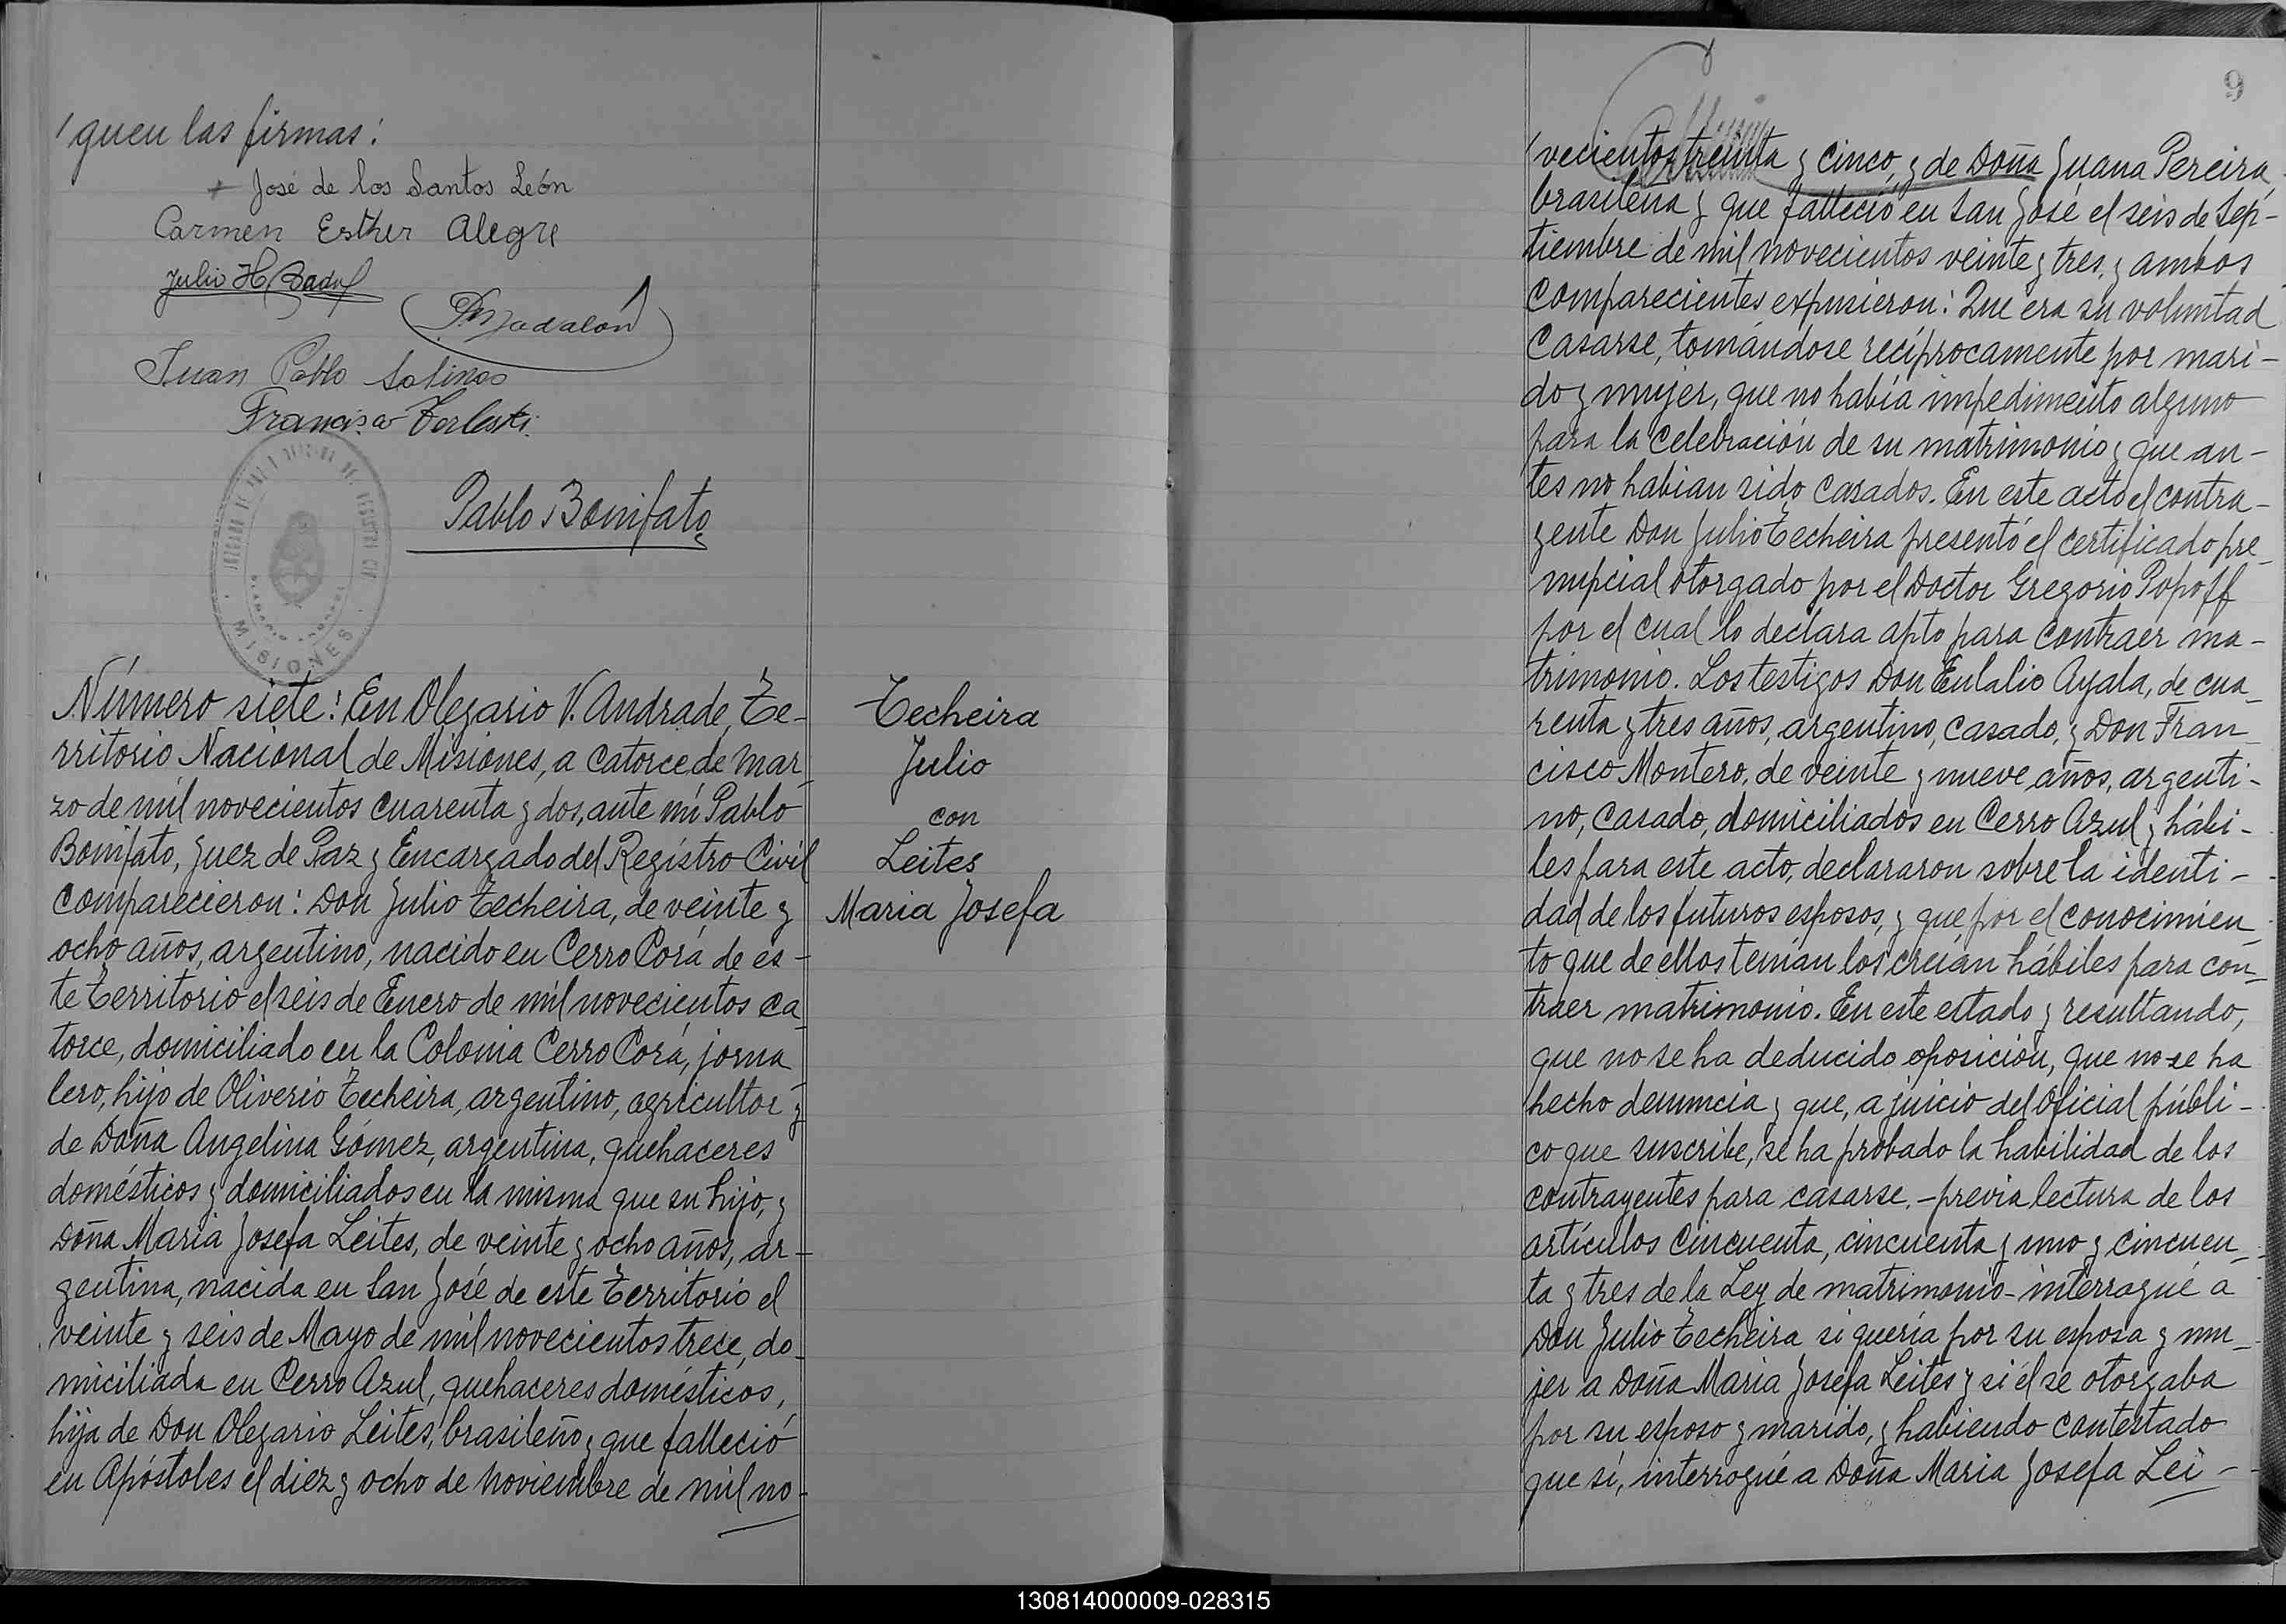 /guen las firmas:
José de los Santos León
Carmen Esther Alegre
Julio H.
Juan Pablo Salinas
Francisco
Pablo Bonifato
MISIONES
Número siete: En Olegario V. Andrade, Te-
rritorio Nacional de Misiones, a catorce de Mar-
zo de mil novecientos cuarenta y dos, ante mi Pablo
Bonifato, Juez de Paz y Encargado del Registro Civil
comparecieron: Don Julio Techeira, de veinte y
ocho años, argentino, nacido en Cerro Corá de es-
te Territorio el seis de Enero de mil novecientos ca-
torce, domiciliado en la Colonia Cerro Corá, jorna-
lero, hijo de Oliverio Techeira, argentino, agricultor y
de Doña Angelina Gómez, argentina, quehaceres
domésticos y domiciliados en la misma que su hijo, y
Doña Maria Josefa Leites, de veinte y ocho años, ar-
gentina, nacida en San José de este Territorio el
veinte y seis de Mayo de mil novecientos trece, do-
miciliada en Cerro Azul, quehaceres domésticos,
hija de Don Olegario Leites, brasileño y que falleció
en Apóstoles el diez y ocho de Noviembre de mil no-
Techeira
Julio
con
Leites
Maria Josefa
9
/vecientos treinta y cinco, y de Doña Juana Pereira,
brasileña y que falleció en San José el seis de Sep-
tiembre de mil novecientos veinte y tres, y ambos
comparecientes expusieron: Que era su voluntad
Casarse, tomándose recíprocamente por mari-
do y mujer, que no había impedimento alguno
para la celebración de su matrimonio y que an-
tes no habian sido casados. En este acto el contra-
yente Don Julio Techeira presentó el certificado pre-
nupcial otorgado por el Doctor Gregorio Popoff
por el cual lo declara apto para contraer ma-
trimonio. Los testigos Don Eulalio Ayala, de cua-
renta y tres años, argentino, casado, y Don Fran-
cisco Montero, de veinte y nueve años, argenti-
no, casado, domiciliados en Cerro Azul y hábi-
les para este acto, declararon sobre la identi-
dad de los futuros esposos, y que por el conocimien-
to que de ellos tenían los creían hábiles para con-
traer matrimonio. En este estado y resultando,
que no se ha deducido oposición, que no se ha
hecho denuncia y que, a juicio del Oficial públi-
co que suscribe, se ha probado la habilidad de los
contrayentes para casarse.-previa lectura de los
artículos cincuenta, cincuenta y uno y cincuen-
ta y tres de la Ley de matrimonio-interrogué a
Don Julio Techeira si quería por su esposa y mu-
jer a Doña Maria Josefa Leites y si él se otorgaba
por su esposo y marido, y habiendo contestado
que sí, interrogué a Doña Maria Josefa Lei-
130814000009-028315